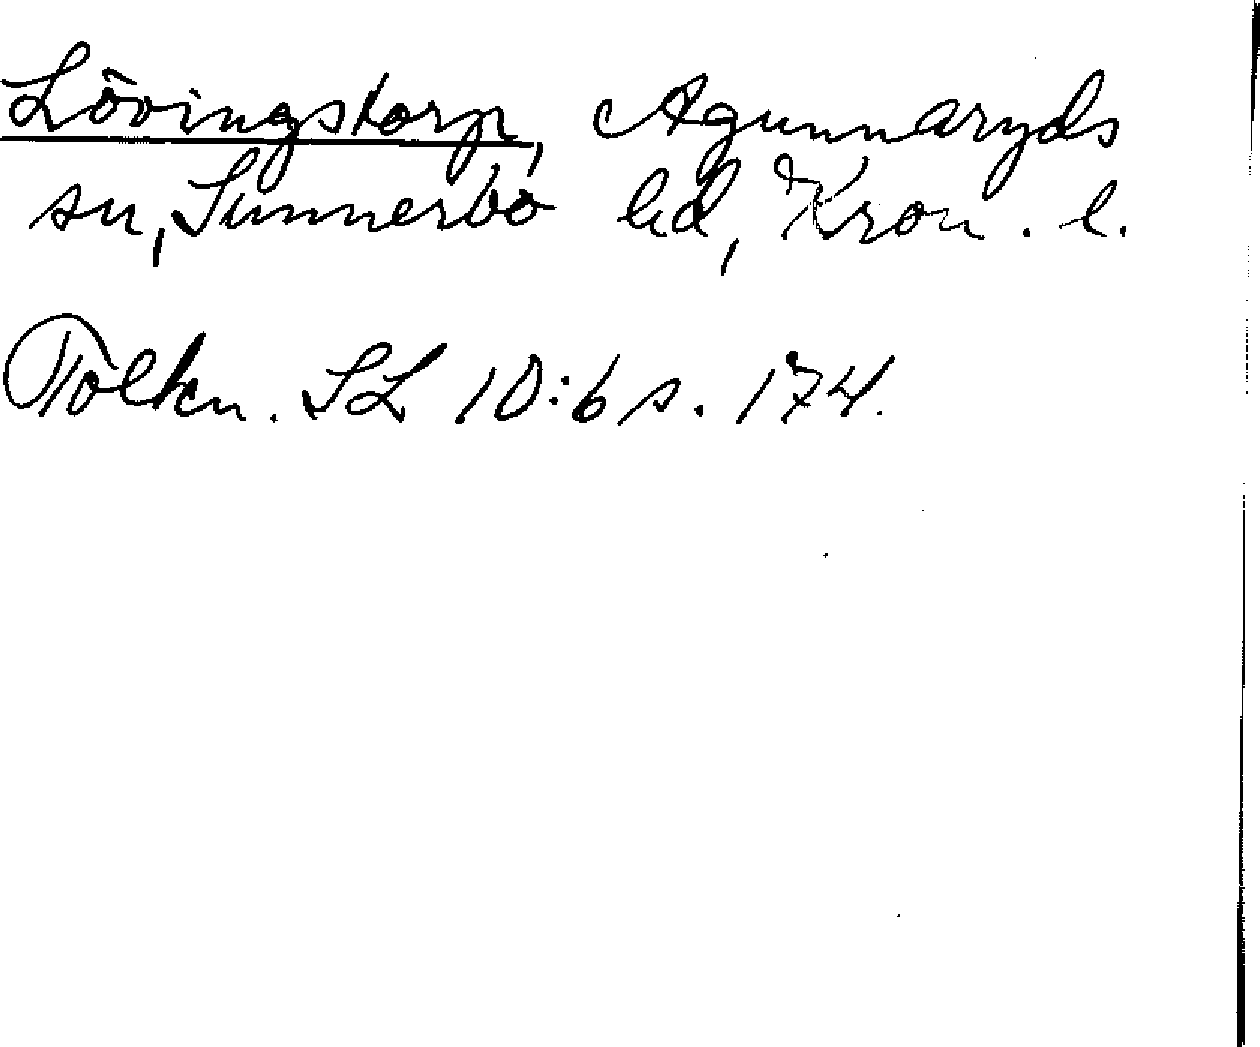 Lövingstorp, Agunnaryds
sn, Sunnerbo hd, Kron. l.
Tolkn. SL 10:6 s. 174.